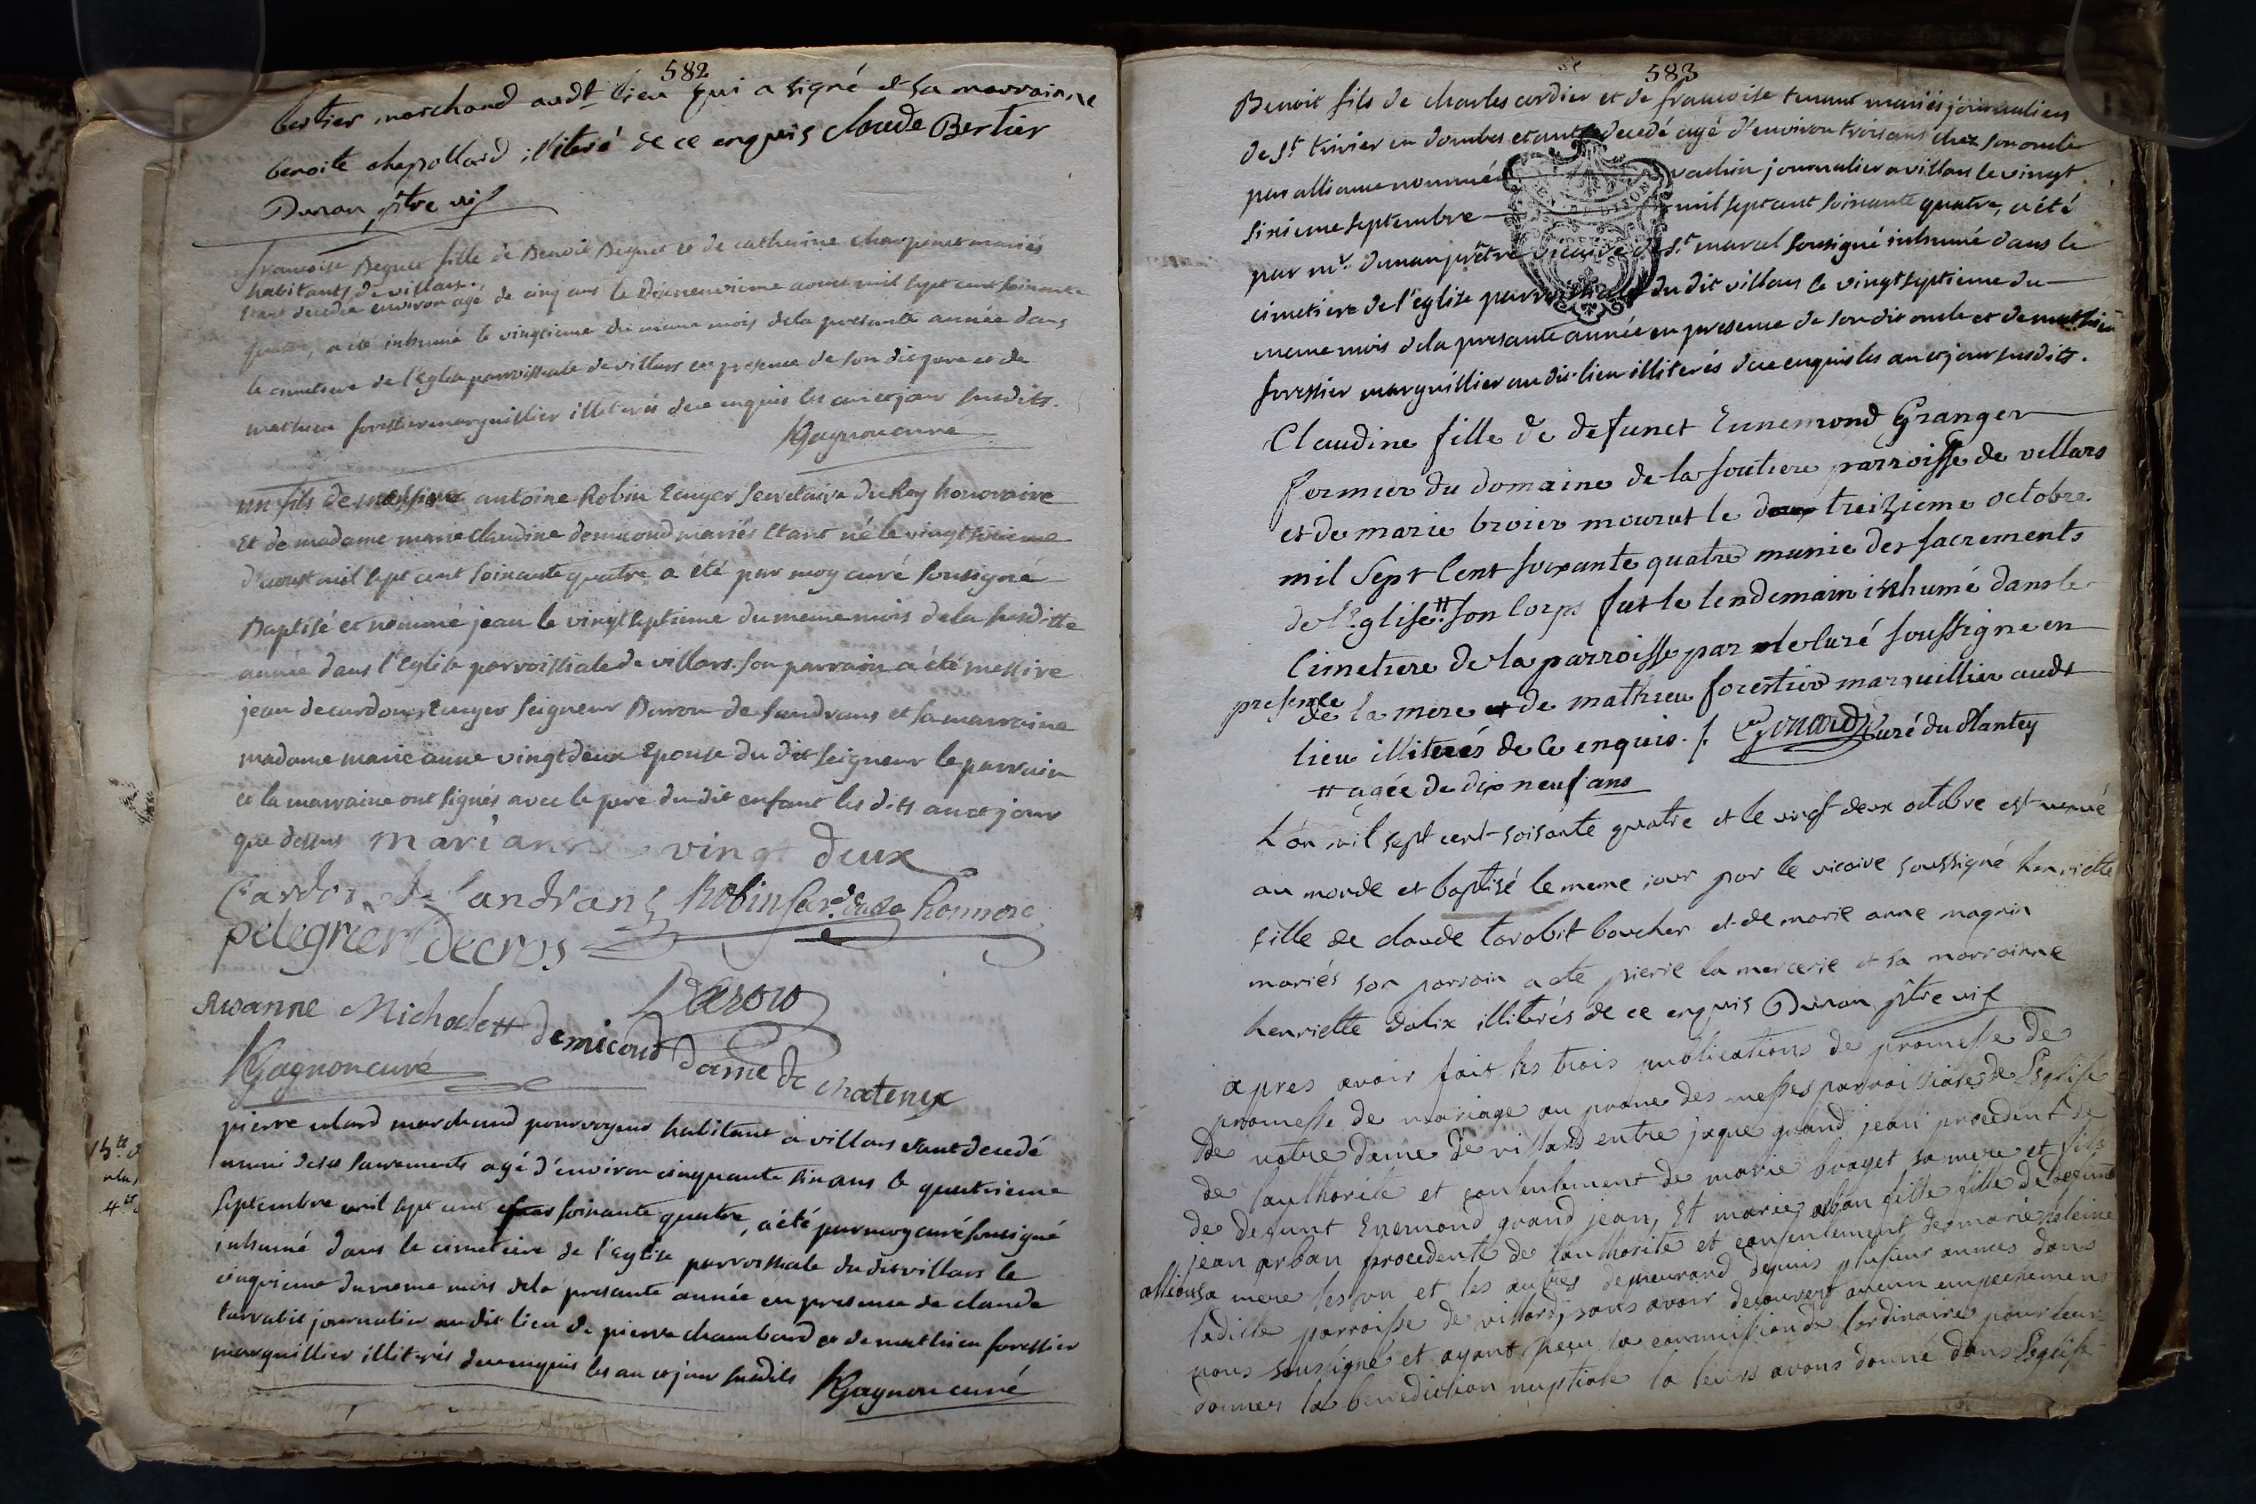 582
bertier marchand audt lieu qui a signé et sa marrainne
benoite chapollard illiteré de ce enquis claude Bertier
Dunan ptre vic
francoise Beguet fille de Benoit Beguet et de catherine charpinet mariés
habitants de villars,
Etant decedée environ agé de cinq ans le dixneuvieme aoust mil sept cent soixante
quatre, a eté inhumé le vingtieme du meme mois dela presente année dans
le cimetiere de l'Eglise parroissiale de villars en presence de son dit pere et de
mathieu forestier marguillier illiterés de ce enquis les an et jour susdits.
Gagnon curé
un fils de messire antoine Robin Ecuyer secretaire du Roy honoraire
Et de madame marie claudine demicoud mariés Etant né le vingt sixieme
d'aoust mil sept cent soixante quatre a été par moy curé sousigné
Baptisé et nommé jean le vingt septieme du meme mois dela susditte
année dans l'Eglise parroissiale de villars. son parrain a été messire
jean de cardon Ecuyer seigneur Baron de sandrans et sa marraine
madame marie anne vingtdeux Epouse du dit seigneur le parrain
et la marraine ont signés avec le pere du dit enfant les dits an et jour
que dessus marianne vingt deux
Cardon de Sandrans Robin honnore
pelegrier decros
Suzanne Michodett demicoud
dame de chatenex
Gagnon curé
pierre ulard marchand pourvoyeur habitant a villars etant decedé
muni deses sacrements agé d'environ cinquante six ans le quatrieme
septembre mil sept cent soixante quatre, a été par moy curé sousigné
inhumé dans le cimetiere de l'Eglise parroissiale du dit villars le
cinquieme du meme mois dela presente année en presence de claude
tarrabit journalier au dit lieu de pierre chambard et de mathieu forestier
marguillier illiterés de ce enquis les an et jour susdits Gagnon curé
583
Benoit fils de charles cordier et de francoise tenant mariés journaliers
de st trivier en dombes etant decedé agé d'environ trois ans chez son oncle
par alliance nommé vachin journalier a villars le vingt
sixieme septembre mil sept cent soixante quatre, a été
par mr. dunan prêtre vicaire de st. marcel sousigné inhumé dans le
cimetiere de l'eglise parroissiale du dit villars le vingt septieme du
meme mois dela presente année en presence de son dit oncle et de mathieu
forestier marguillier au dit lieu illiterés de ce enquis les an et jour susdits.
Claudine fille de defunct Ennemond Granger
fermier du domaine de la foutiere parroisse de villars
et de marie broier mourut le treizieme octobre
mil Sept Cent soixante quatre munie des sacrements
de l'Eglise # son Corps fut le lendemain inhumé dans le
Cimetiere de la parroisse par le curé soussigne en
presence
de la mere et de mathieu forestier marguillier audt
lieu illiterés de ce enquis. /. Gonard Curé du Plantey
# agée de dix neuf ans
L'an mil sept cent soisante quatre et le vingt deux octobre est venué
au monde et baptisé le meme jour par le vicaire soussigné henriette
fille de claude tarabit boucher et de marie anne magnin
mariés son parrain a eté pierre la mercerie et sa marrainne
henriette dalix illiterés de ce enquis Dunan ptre vic
apres avoir fait les trois publications de promesse de
promesse de mariage au prone des messes parroissiales de l'Eglise
de notre dame de villard entre jaque grand jean procedent de
de l'authorité et consentement de marie buaget sa mere et fils
de defunt Enemond grand jean, Et marie arban fille fille de defunt
jean arban procedente de l'authorité et consentement de marie heleine
alliousa mere les un et les autres demeurand depuis plusieur années dans
ladite parroisse de villard, sans avoir decouvert aucun empechement
nous soussigne et ayant reçu la commission de l'ordinaire pour leur
donner la benediction nuptiale la leurs avons donné dans l'Eglise